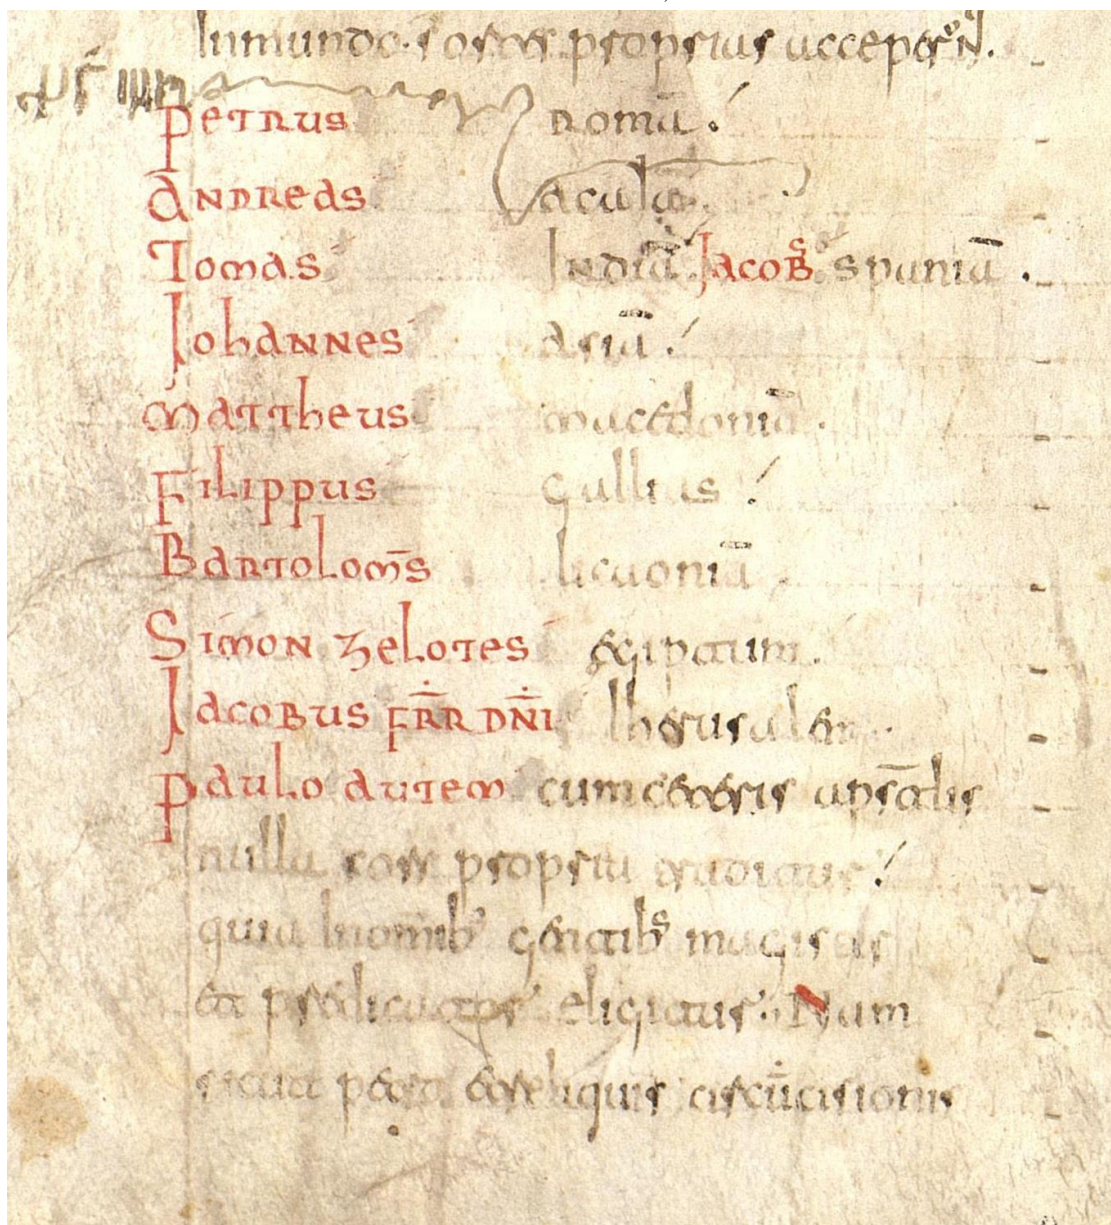 Inmundo. sortes proprias acceperunt.
Petrus romā
Andreas acaiā.
Tomas Indiā Jacobs spaniā.
Johannes asiā
mattheus macedoniā.
Filippus gallias
Bartolom̄s licaoniā
Simon zelotes egiptum.
Jacobus fr̄r dn̄i Iherusalem.
Paulo autem cum ceteris apostolis
nulla sors propria traditur
quia In omnibs gentibs magister
et predicator eligitur. Nam
sicut petro et reliquis circūcisionis